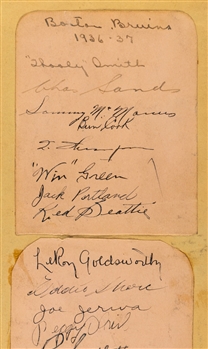 Boston Bruins
1936-37
"Hooley Smith
Chas Sands
Sammy McManus
Bun Cook
T. Thompson
"Win" Green
Jack Portland
Red Beattie
LeRoy Goldsworthy
Eddie Shore
Joe Jerwa
Peggy O'Neil